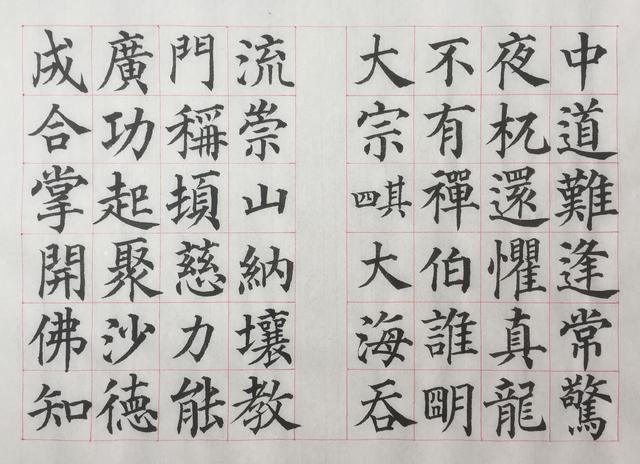 中道難逢常驚
夜杌還懼真龍
不有禪伯誰朙
大宗其四大海吞
流崇山納壤教
門稱頓慈力能
廣功起聚沙德
成合掌開佛知